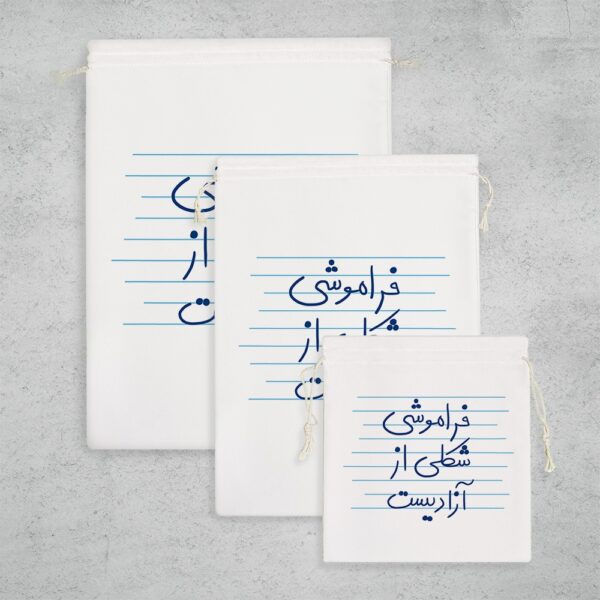 از
فراموشی
از
فراموشی
شکلی از
آزادیست